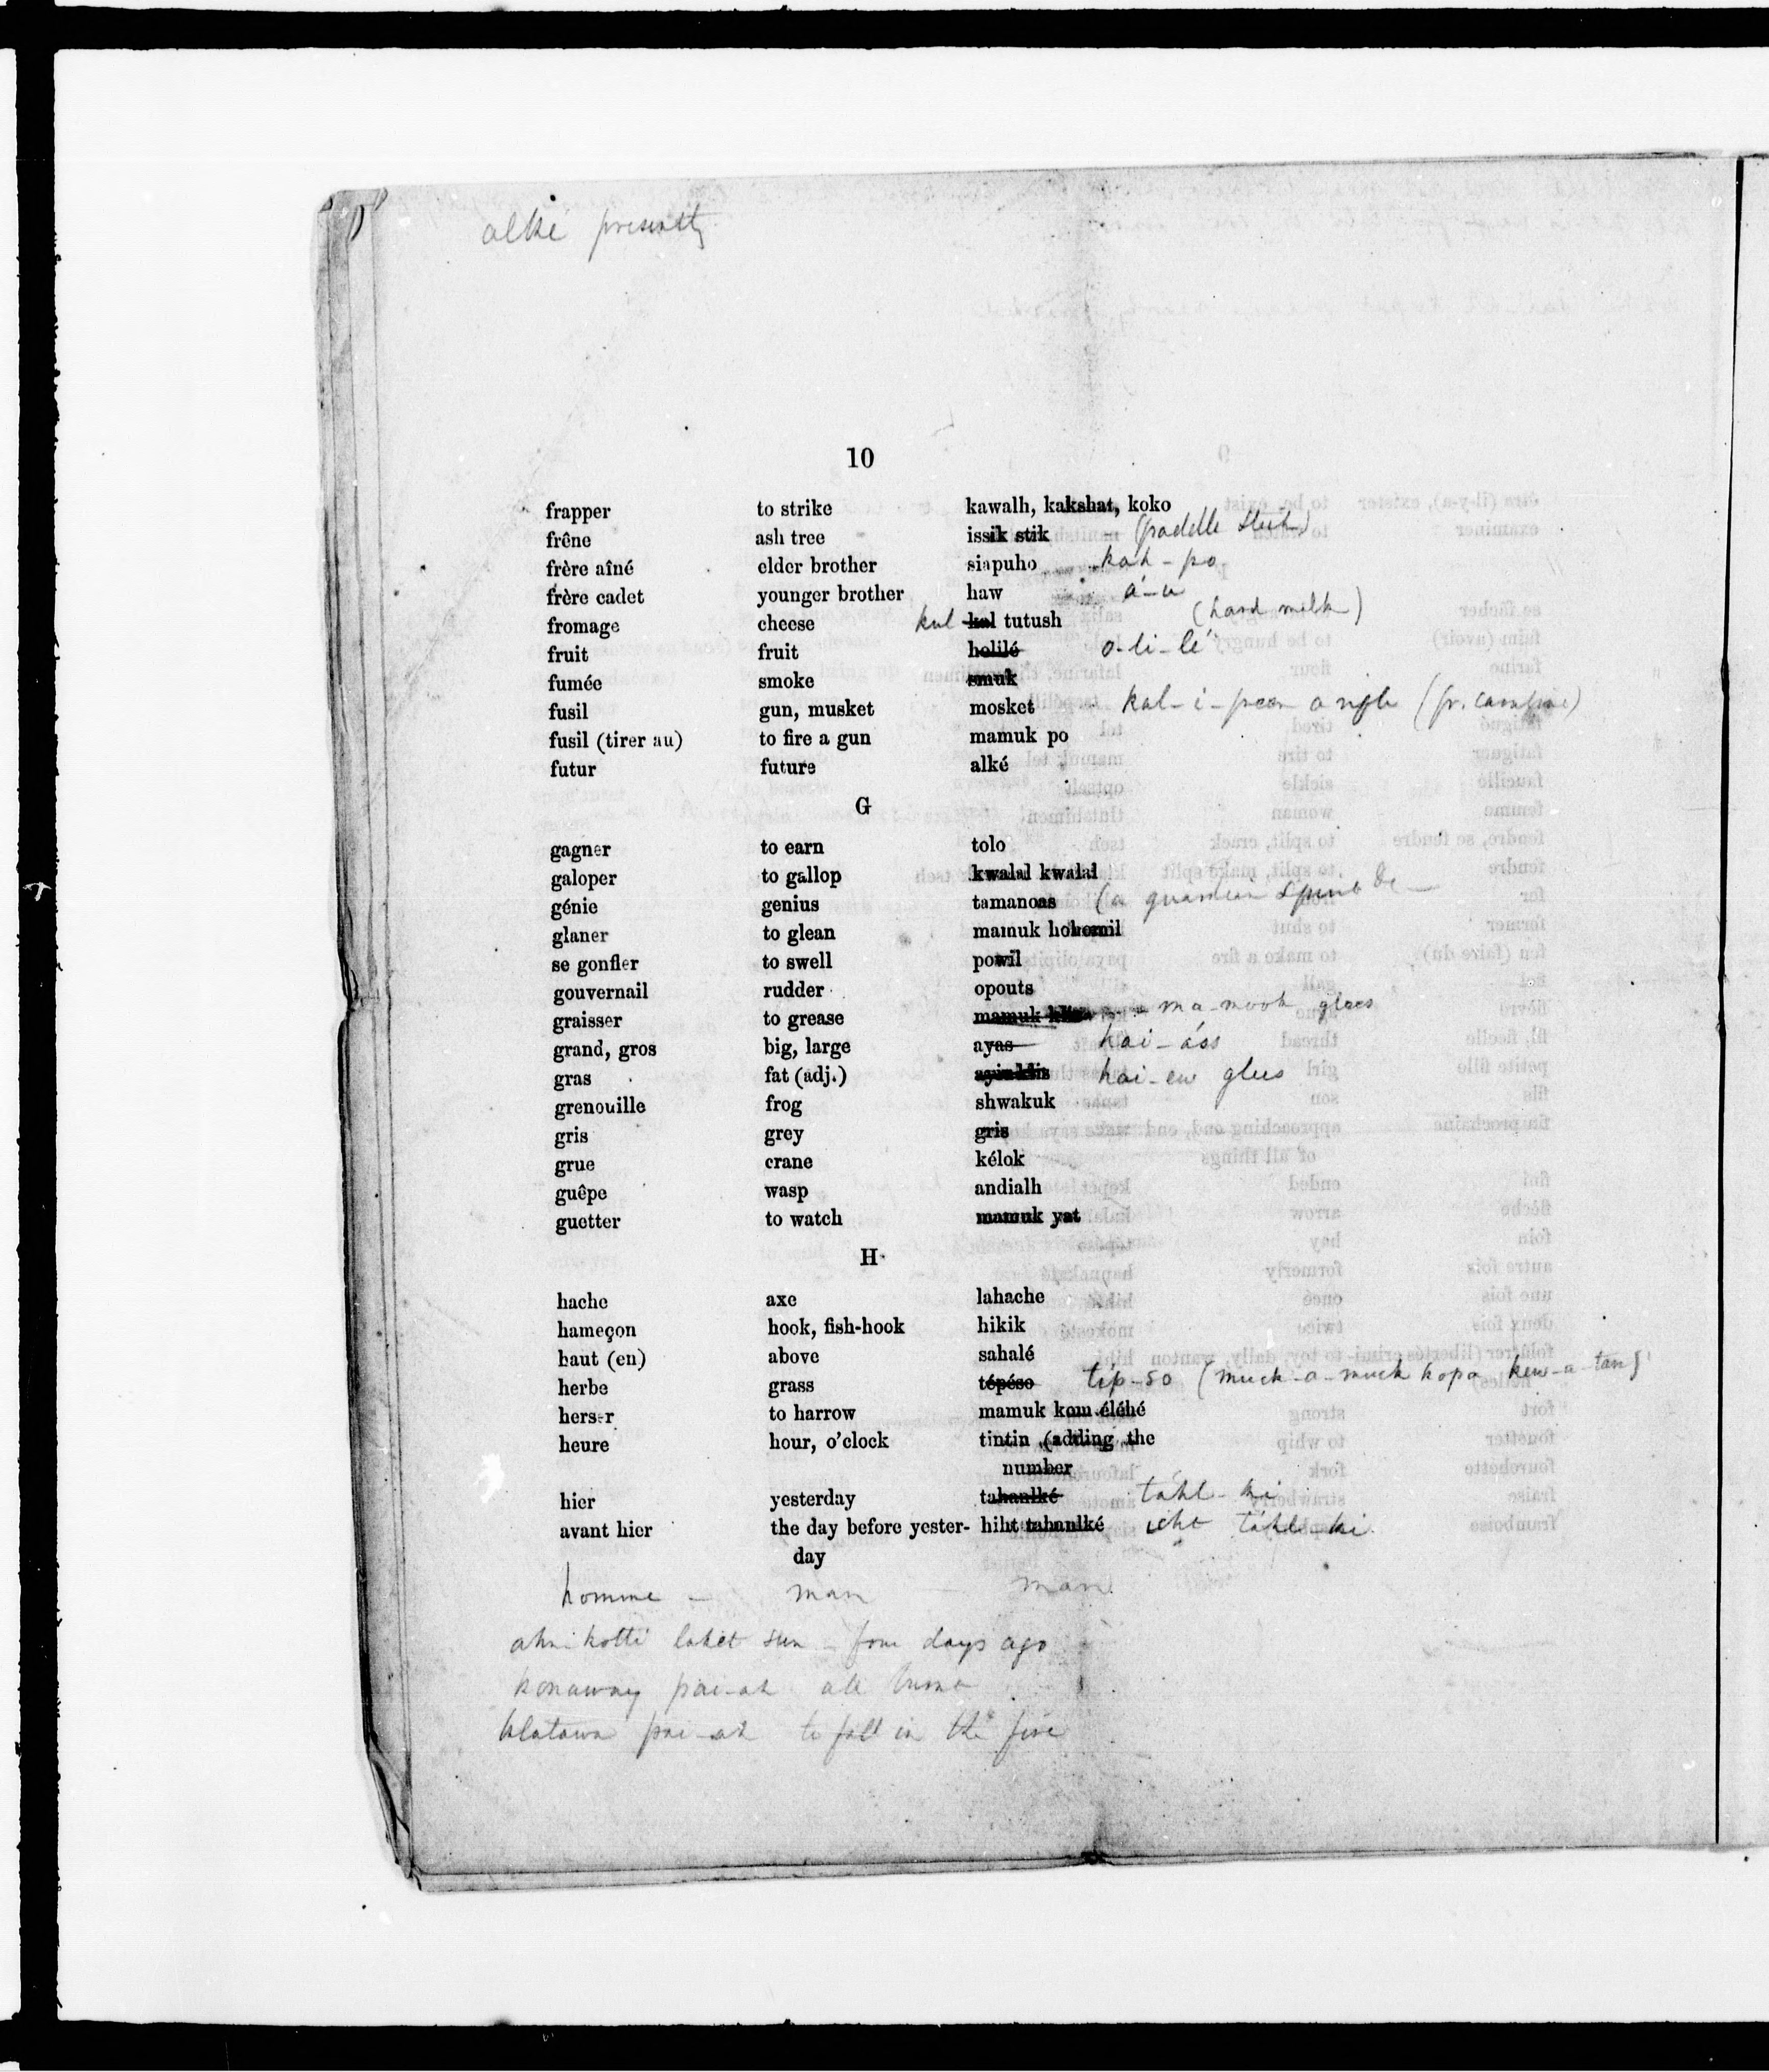 alké presently
10
frapper to strike kawalh, kakshat, koko
frêne ash tree issik stik (paddle stick)
frère aîné elder brother siapuho kah-po
frère cadet younger brother haw á-ú
fromage cheese kul kal tutush (hard milk)
fruit fruit holilé o-li-lé
fumée smoke smuk
fusil gun, musket mosket kal-i-peen a rifle (fr. carabine)
fusil (tirer au) to fire a gun mamuk po
futur future alké
G
gagner to earn tolo
galoper to gallop kwalal kwalal
génie genius tamanoas (a guardian spirit &c
glaner to glean mamuk hohomil
se gonfler to swell powil
gouvernail rudder opouts
graisser to grease mamuk klis ma-mook glees
grand, gros big, large ayas hai-áss
gras fat (adj.) hai-ew glees
grenouille frog shwakuk
gris grey gris
grue crane kélok
guêpe wasp andialh
guetter to watch mamuk yat
H
hache axe lahache
hameçon hook, fish-hook hikik
haut (en) above sahalé
herbe grass tépéso típ-so (muck-a-muck kopa kew-a-tan)
herser to harrow mamuk kom éléhé
heure hour, o'clock tintin (adding the
number
hier yesterday tahanlké táhl-ki
avant hier the day before yester- hiht tahanlké icht táhl-ki
day
homme - man - man
ahn-kotti laket sun - four days ago
konaway pai-ah all burnt
klatawa pai-ah to fall in the fire